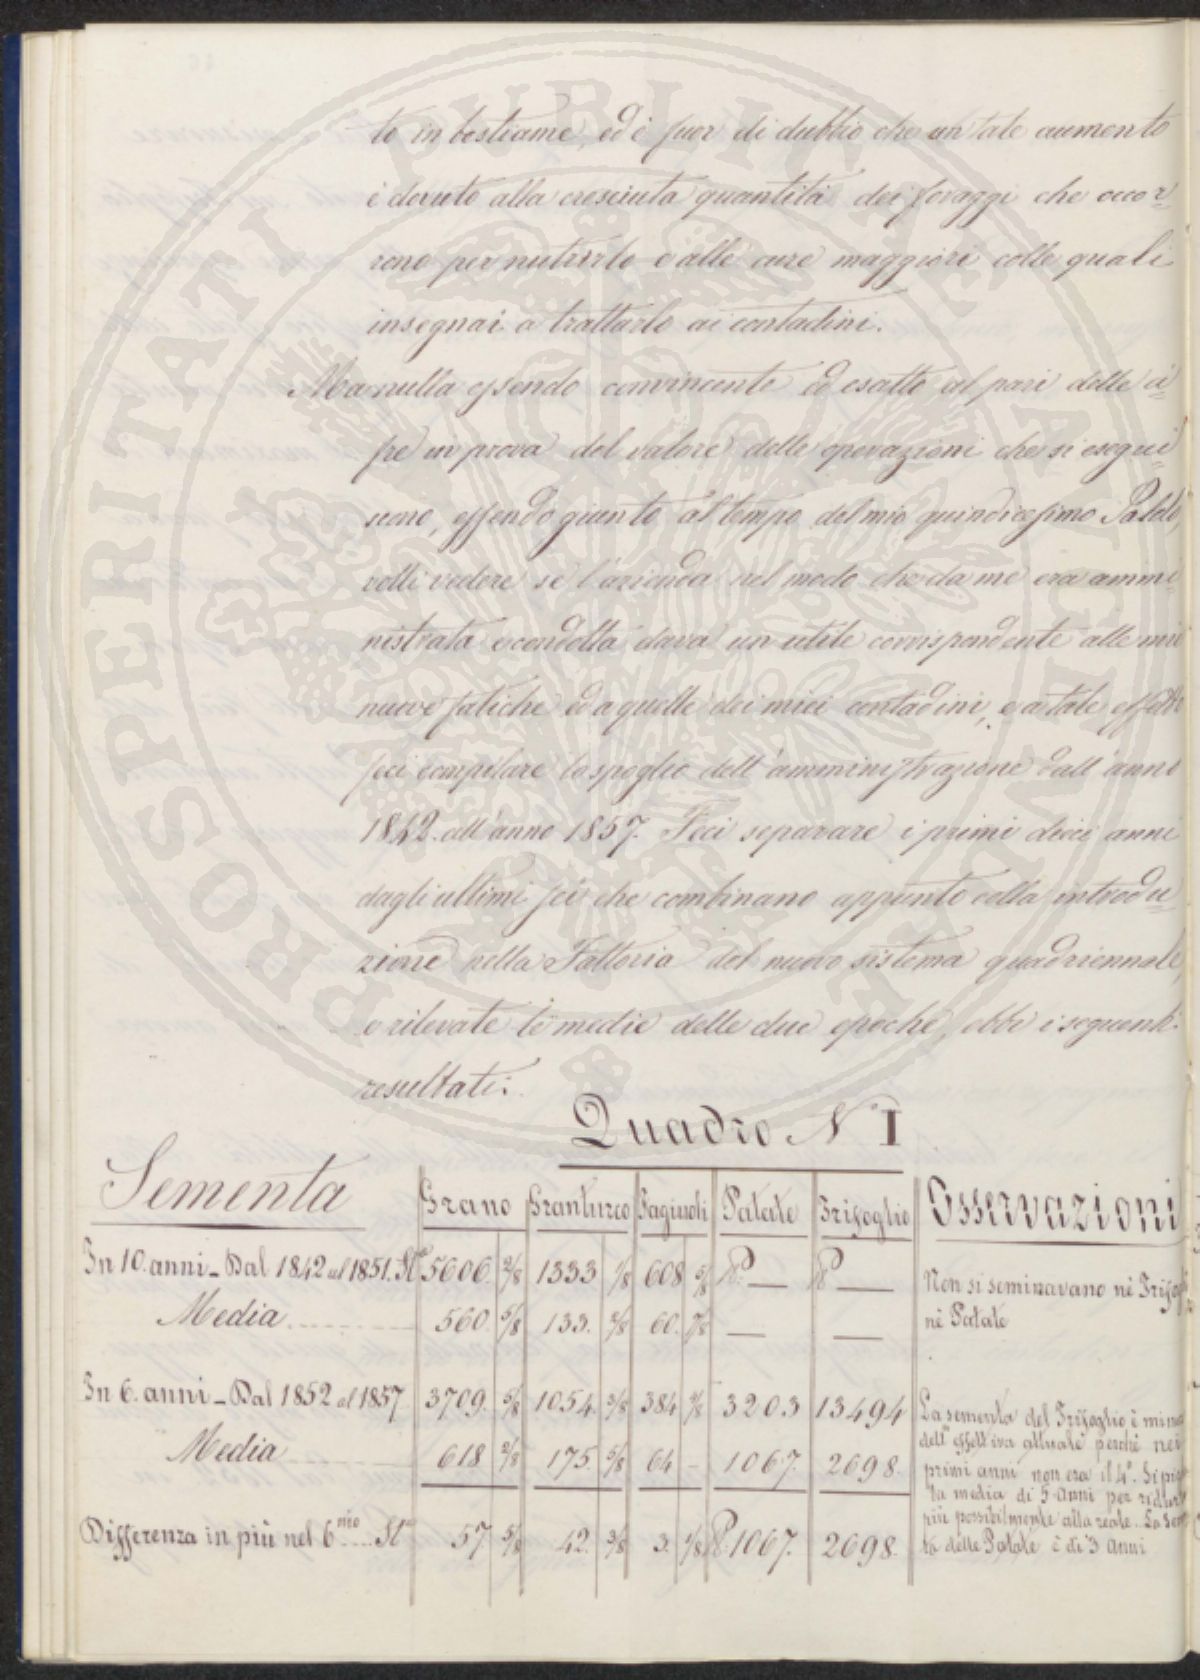 to in bestiame, ed è fuor di dubbio che un tale aumento
è dovuto alla cresciuta quantità dei foraggi che occor=
rono per nutrirlo e alle cure maggiori colle quali
insegnai a trattarlo ai contadini.
Ma nulla essendo convincente ed esatto al pari delle ci=
fre in prova del valore delle operazioni che si esegui=
scono, essendo giunto al tempo del mio quindicesimo Saldo,
volli vedere se l'azienda nel modo che da me era ammi=
nistrata e condotta dava un utile corrispondente alle mie
nuove fatiche ed a quelle dei miei contadini, e a tale effetto
feci compilare lo spoglio dell'amministrazione dall'anno
1842. all'anno 1857. Feci separare i primi dieci anni
dagli ultimi sei che combinano appunto colla introdu=
zione nella Fattoria del nuovo sistema quadriennale,
e rilevate le medie delle due epoche, ebbi i seguenti
resultati:
Quadro N I
Sementa Grano Granturco Fagiuoli Patate Trifoglio Osservazioni
In 10. anni _ Dal 1842 al 1851. St 5606. 2/8 1333 1/8 608 5/8 ℔. — ℔ — Non si seminavano nè Trifog
Media 560. 5/8 133. 2/8 60. 7/8 — — nè Patate
In 6. anni _ Dal 1852 al 1857 3709. 5/8 1054. 3/8 384 3203 13494 La sementa del Trifoglio è minore
dell' effettiva attuale perchè nei
Media 618 2/8 175. 5/8 64 – 1067. 2698. primi anni non era il 4°. Si
la media di 5 anni per
più possibilmente alla reale. La Sem
Differenza in più nel 6.nio St 57. 5/8 42. 3/8 3. 1/8 ℔. 1067. 2698. ta delle Patate è di 3 Anni
PROSPERITATI PUBLICAE AUGENDAE